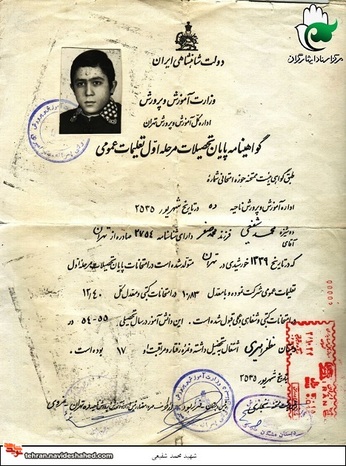 مرکز اسناد ایثارگران
دولت شاهنشاهی ایران
وزارت آموزش و پرورش
اداره کل آموزش و پرورش تهران
گواهینامه پایان تحصیلات مرحله اول تعلیمات عمومی
طبق گواهی هیئت ممتحنه حوزه امتحانی شماره
اداره آموزش و پرورش ناحیه ده در تاریخ شهریور ۲۵۳۵
دوشیزه آقای محمد شفیعی فرزند دارای شناسنامه ۲۷۵۴ صادره از تهران
که در تاریخ ۱۳۳۹ خورشیدی در تهران متولد شده است در امتحانات پایان تحصیلات مرحله اول
تعلیمات عمومی شرکت نموده و با معدل ۱۰٫۸۳ در امتحانات کتبی و معدل کل ۱۲٫۴۰
در امتحانات کتبی و شفاهی و عملی قبول شده است . این دانش آموز در سال تحصیلی ۵۵-۵۴
در اشتغال به تحصیل داشته و نمره رفتار و مراقبت او ۹۷ بوده است .
تاریخ شهریور ۲۵۳۵
tehran.navideshahed.com
شهید محمد شفیعی